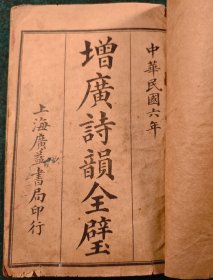 中華民國六年
增廣詩韻全璧
上海廣益書局印行